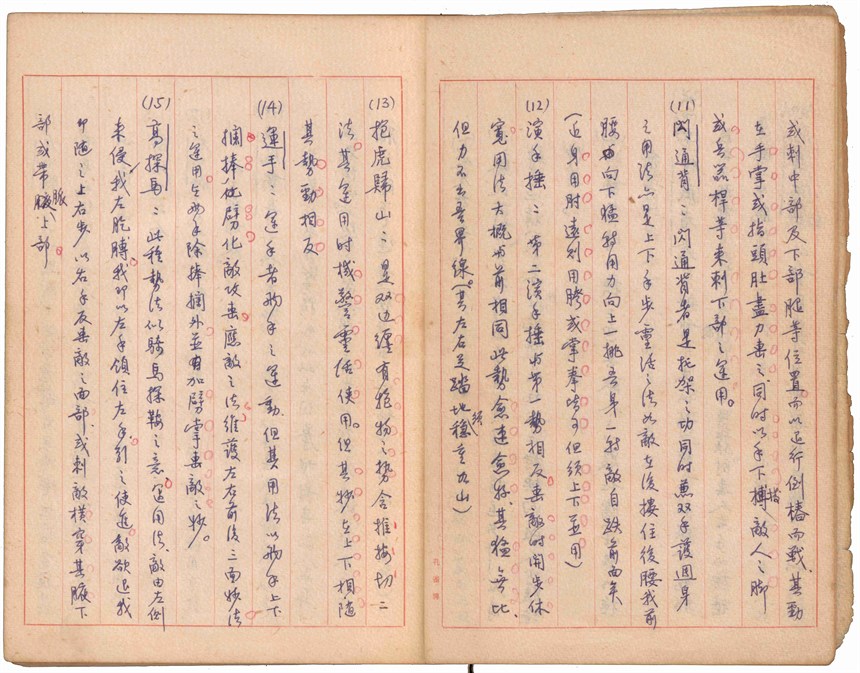 或刺中部及下部腿等位置而以退行倒樁而戰、其勁
在手掌或指頭肚盡力击之、同時以手下搏敵人之脚
或兵器桿等来刺下部之運用。
(11) 閃通背：閃通背者是托架之功同時兼双手護週身
之用法亦是上下手步靈活之法如敵在後摟住後腰我前
腰向下猛轉用力向上一挑吾身一轉敵自跌前面矣
(近身用肘遠則用膀或掌拳皆可但須上下並用)
(12) 演手捶：第二演手捶与第一勢相反击敵時開步休
寬用法大概与前相同此勢愈速愈好、其猛無比、
但力不出吾界線(其左右足踏地須穩重如山)
(13) 抱虎歸山：是双边纏有抱物之势含推按切二
法其運用时機警靈活使用。但其妙在上下相随
其勢勁相反
(14) 運手：運手者兩手之運動、但其用法以兩手上下
捆捧化劈化敵攻击應敵之法維護左右前後三面妙法
之運用全兩手除捧捆外並加劈掌击敵之妙。
(15) 高探馬：此種勢法似騎馬探鞍之意、運用法、敵由左側
来侵我左肐膊我即以左手領住左手引之使進敵欲退我
即随之上右步以右手反击敵之面部或刺敵横穿其腋下
部或帶脹上部